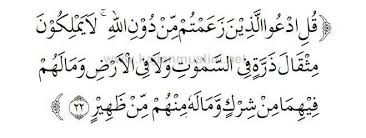 ﴿ قُلِ ادْعُوا الَّذِيْنَ زَعَمْتُمْ مِّنْ دُوْنِ اللّٰهِ ۚ لَا يَمْلِكُوْنَ
مِثْقَالَ ذَرَّةٍ فِى السَّمٰوٰتِ وَلَا فِى الْاَرْضِ وَمَا لَهُمْ
فِيْهِمَا مِنْ شِرْكٍ وَّمَا لَهٗ مِنْهُمْ مِّنْ ظَهِيْرٍ ﴿٢٢﴾ ﴾